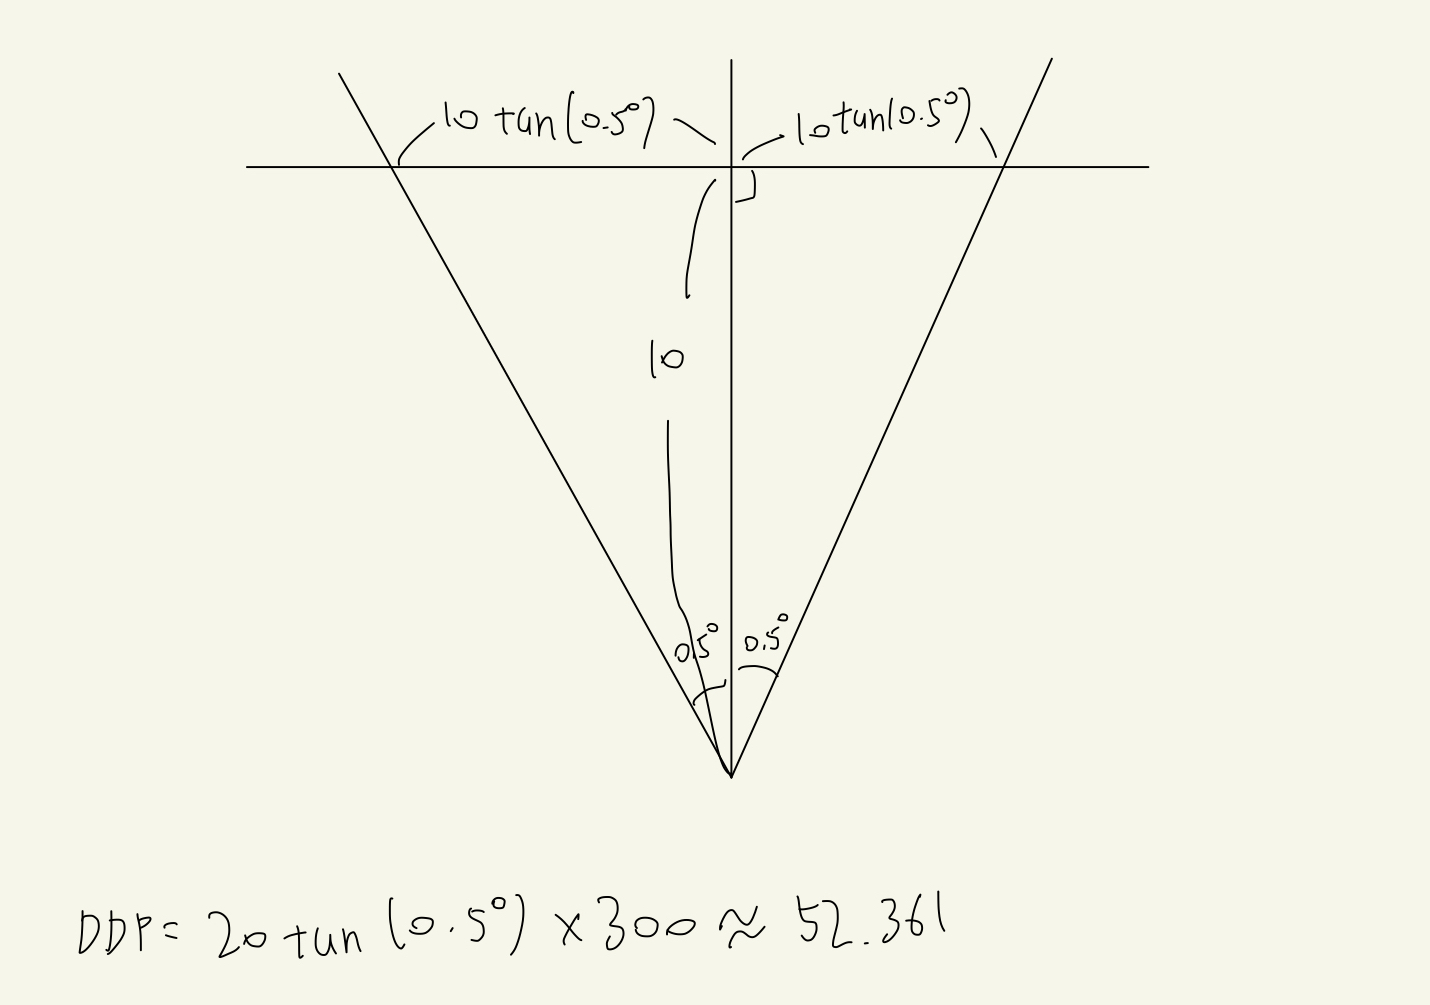 10 tan(0.5°)
10 tan(0.5°)
10
0.5°
0.5°
DDP= 20 tan (0.5°) × 300 ≈ 52.361